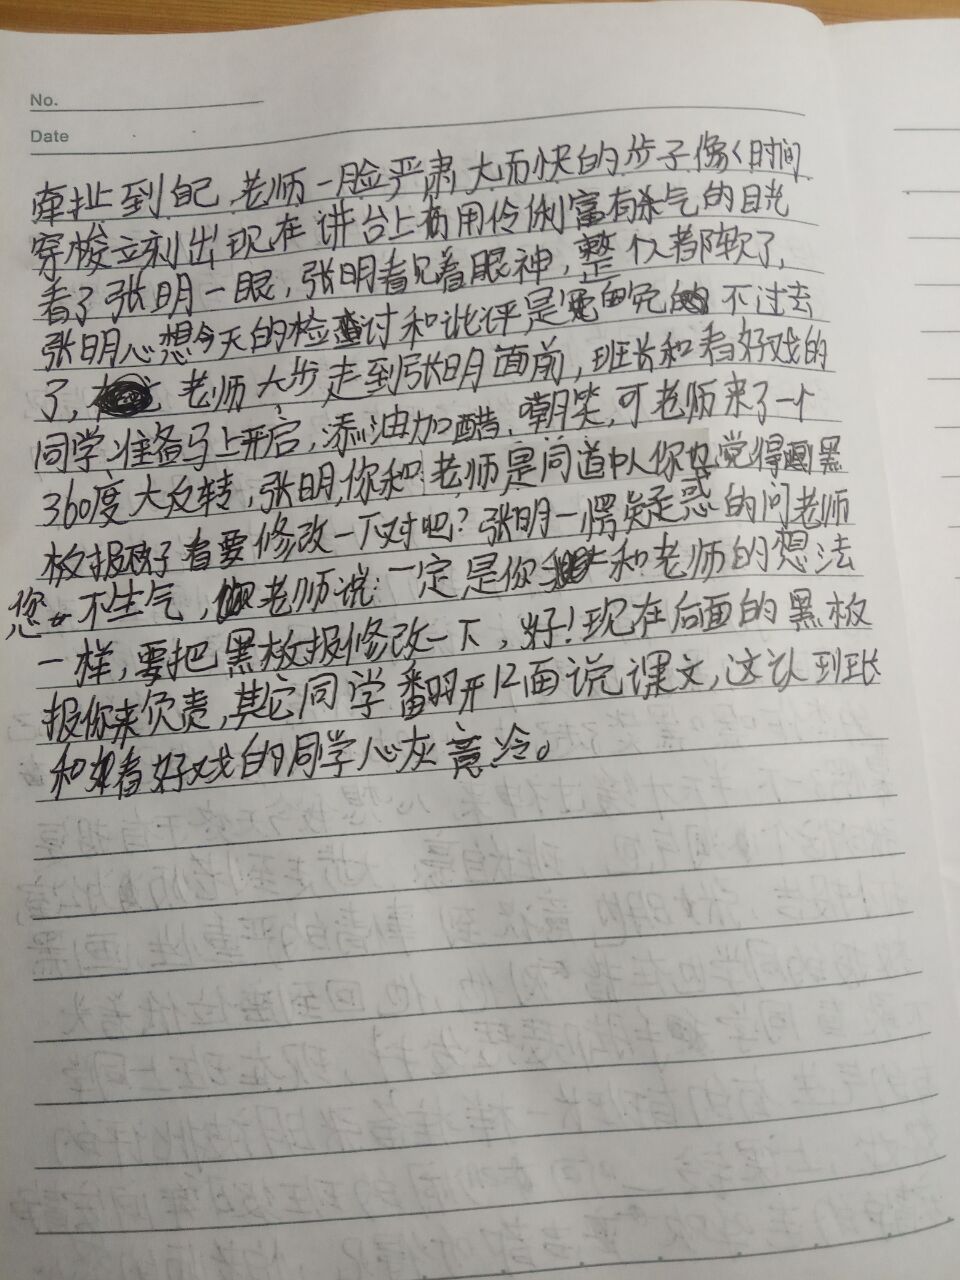 No.
Date
牵扯到自己 老师一脸严肃 大而快的步子像く时间
穿梭立刻出现在讲台上 用伶俐富有杀气的目光
看了张明一眼，张明看见着眼神，整个人都软了，
张明心想今天的检讨和批评是免 不过去
了， 老师大步走到张明面前，班长和看好戏的
同学准备马上开启，添油加醋、嘲笑，可老师来了一个
360度大反转，张明，你和老师是同道中人你也觉得 黑
板报 看要修改一下对吧？张明一愣疑惑的问老师
您 不生气， 老师说：一定是你 和老师的想法
一样，要把黑板报修改一下，好！现在后面的黑板
报你来负责，其它同学翻开12面说课文，这认班长
和 看好戏的同学心灰意冷。